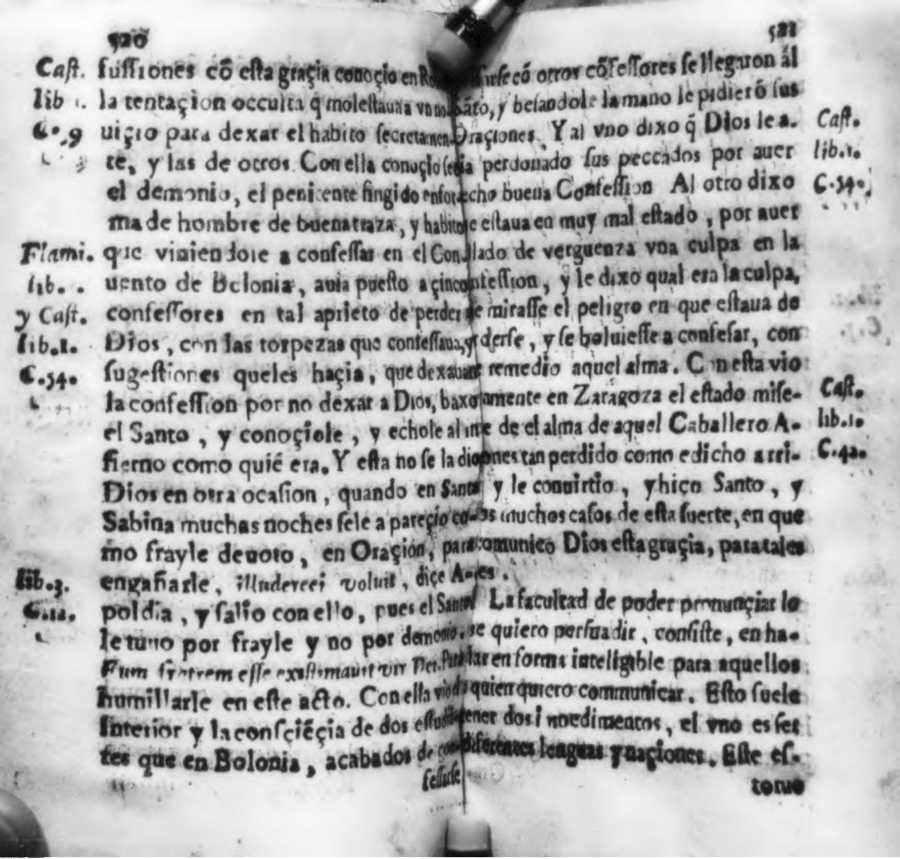 520
Cast. sussiones cõ esta graçia conoçio en
lib 1. la tentaçion occulta q̃ molestaua vno
C.9 uiçio para dexar el habito secretamen-
te, y las de otros. Con ella conoçio
el demonio, el penitente fingido en for-
ma de hombre de buena traza, y habito
Flami. que viniendole a confessar en el Con-
lib. uento de Bolonia, auia puesto a çinco
y Cast. confessores en tal aprieto de perder
lib.1. Dios, con las torpezas que confessaua, y
C.54. sugestiones que les haçia, que dexauan
la confession por no dexar a Dios, baxo
el Santo, y conoçiole, y echole al in-
fierno como quiẽ era. Y esta no se la dio
Dios en otra ocasion, quando en Santa
Sabina muchas noches se le a pareçio co-
mo frayle deuoto, en Oraçión, para
lib.3. engañarle, illudere ei voluit, diçe A-
C.12. poldia, y salio con ello, pues el Santo
le tuuo por frayle y no por demonio.
Fum fratrem esse existimauit vir Dei.
humillarle en este acto. Con ella vio
interior y la consçiẽçia de dos
tes que en Bolonia, acabados de con-
fessarse
521
cõ otros cõfessores se llegaron ál
y besandole la mano le pidierõ sus
Oraçiones. Y al vno dixo q̃ Dios le a- Cast.
uia perdonado sus peccados por auer lib.1.
hecho buena Confession Al otro dixo C.54.
que estaua en muy mal estado, por auer
de verguenza vna culpa en la
confession, y le dixo qual era la culpa,
mirasse el peligro en que estaua de
perderse, y se boluiesse a confesar, con
remedio aquel alma. Con esta vio
claramente en Zaragoza el estado mise- Cast.
de el alma de aquel Caballero A- lib.1.
tan perdido como e dicho arri- C.42.
y le conuirtio, y hiço Santo, y
muchos casos de esta suerte, en que
comunico Dios esta graçia, para tales
La facultad de poder pronunçiar lo
que quiero persuadir, consiste, en ha-
blar en forma inteligible para aquellos
quien quiero communicar. Esto suele
tener dos inpedimentos, el vno es ser
diferentes lenguas y naçiones. Este es-
toruo